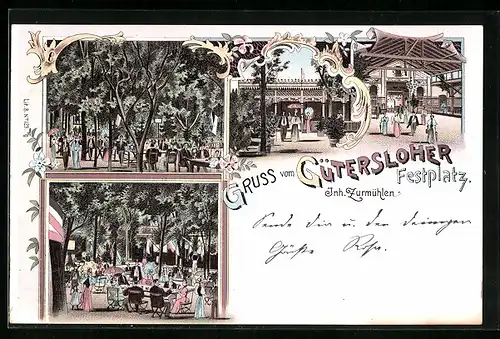 GRUSS vom GÜTERSLOHER
Festplatz.
Inh. Zurmühlen.
Sende dir u. den deinigen
Grüße